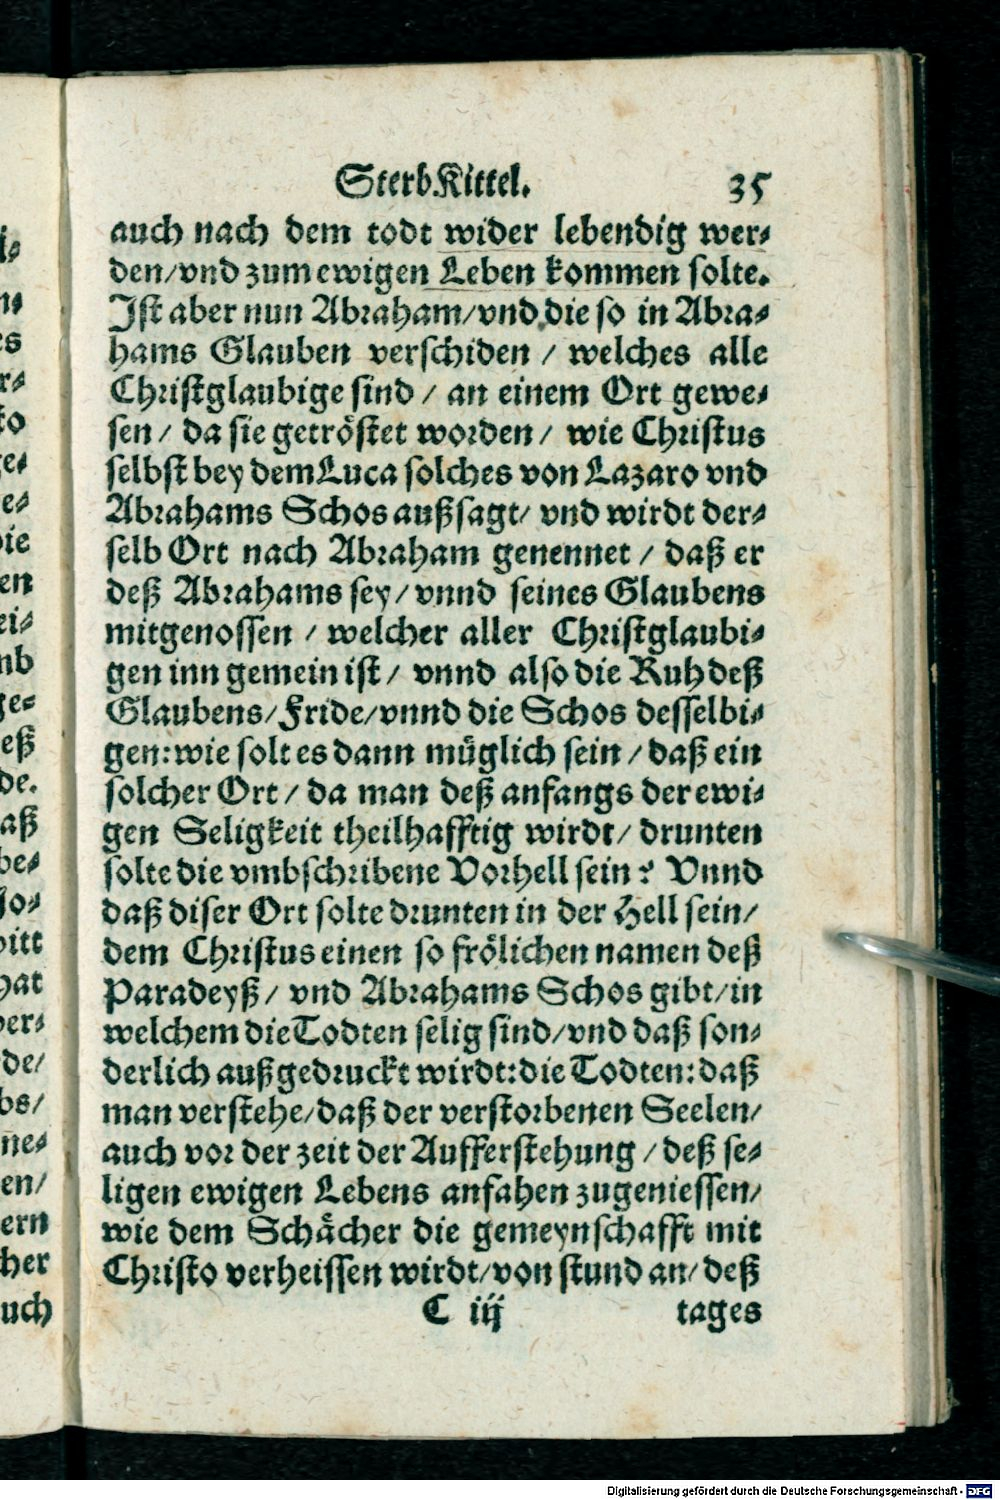 SterbKittel. 35
auch nach dem todt wider lebendig wer⸗
den/vnd zum ewigen Leben kommen solte.
Ist aber nun Abraham/vnd die so in Abra⸗
hams Glauben verschiden / welches alle
Christglaubige sind / an einem Ort gewe⸗
sen / da sie getröstet worden / wie Christus
selbst bey dem Luca solches von Lazaro vnd
Abrahams Schos außsagt/ vnd wirdt der⸗
selb Ort nach Abraham genennet / daß er
deß Abrahams sey / vnnd seines Glaubens
mitgenossen / welcher aller Christglaubi⸗
gen inn gemein ist / vnnd also die Ruh deß
Glaubens/Fride/vnnd die Schos desselbi⸗
gen: wie solt es dann müglich sein / daß ein
solcher Ort / da man deß anfangs der ewi⸗
gen Seligkeit theilhafftig wirdt / drunten
solte die vmbschribene Vorhell sein? Vnnd
daß diser Ort solte drunten in der Hell sein/
dem Christus einen so frölichen namen deß
Paradeyß / vnd Abrahams Schos gibt/in
welchem die Todten selig sind/vnd daß son⸗
derlich außgedruckt wirdt: die Todten: daß
man verstehe/daß der verstorbenen Seelen/
auch vor der zeit der Aufferstehung / deß se⸗
ligen ewigen Lebens anfahen zugeniessen/
wie dem Schächer die gemeynschafft mit
Christo verheissen wirdt/von stund an/deß
C iij tages
Digitalisierung gefördert durch die Deutsche Forschungsgemeinschaft - DFG